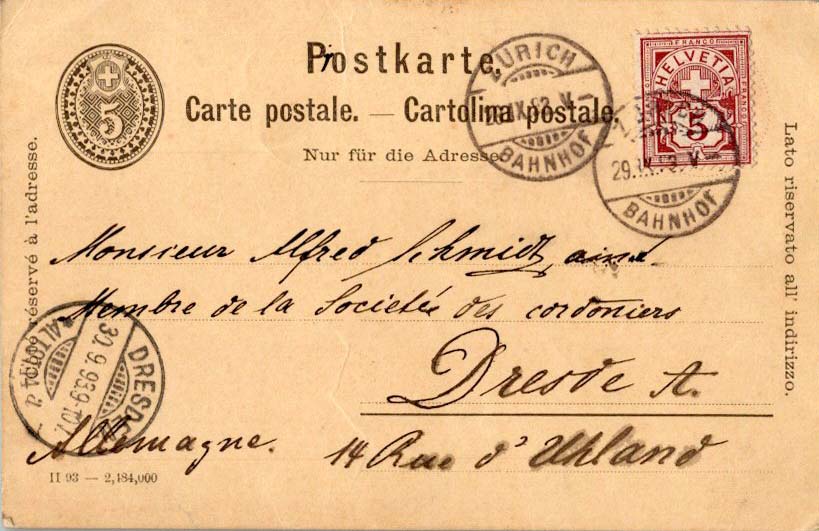 Postkarte.
Carte postale. — Cartolina postale.
Nur für die Adresse.
5
FRANCO
HELVETIA
5
ZÜRICH
BAHNHOF
29.IX.93. V-
BAHNHOF
Côté réservé à l'adresse.
Lato riservato all' indirizzo.
Monsieur Alfred Schmidt, ainé
Membre de la Societée des cordoniers
Dresde A.
Allemagne. 14 Rue d'Uhland
DRESDEN
ALTST.
30.9.93.9-10V.
II 93 — 2,484,000